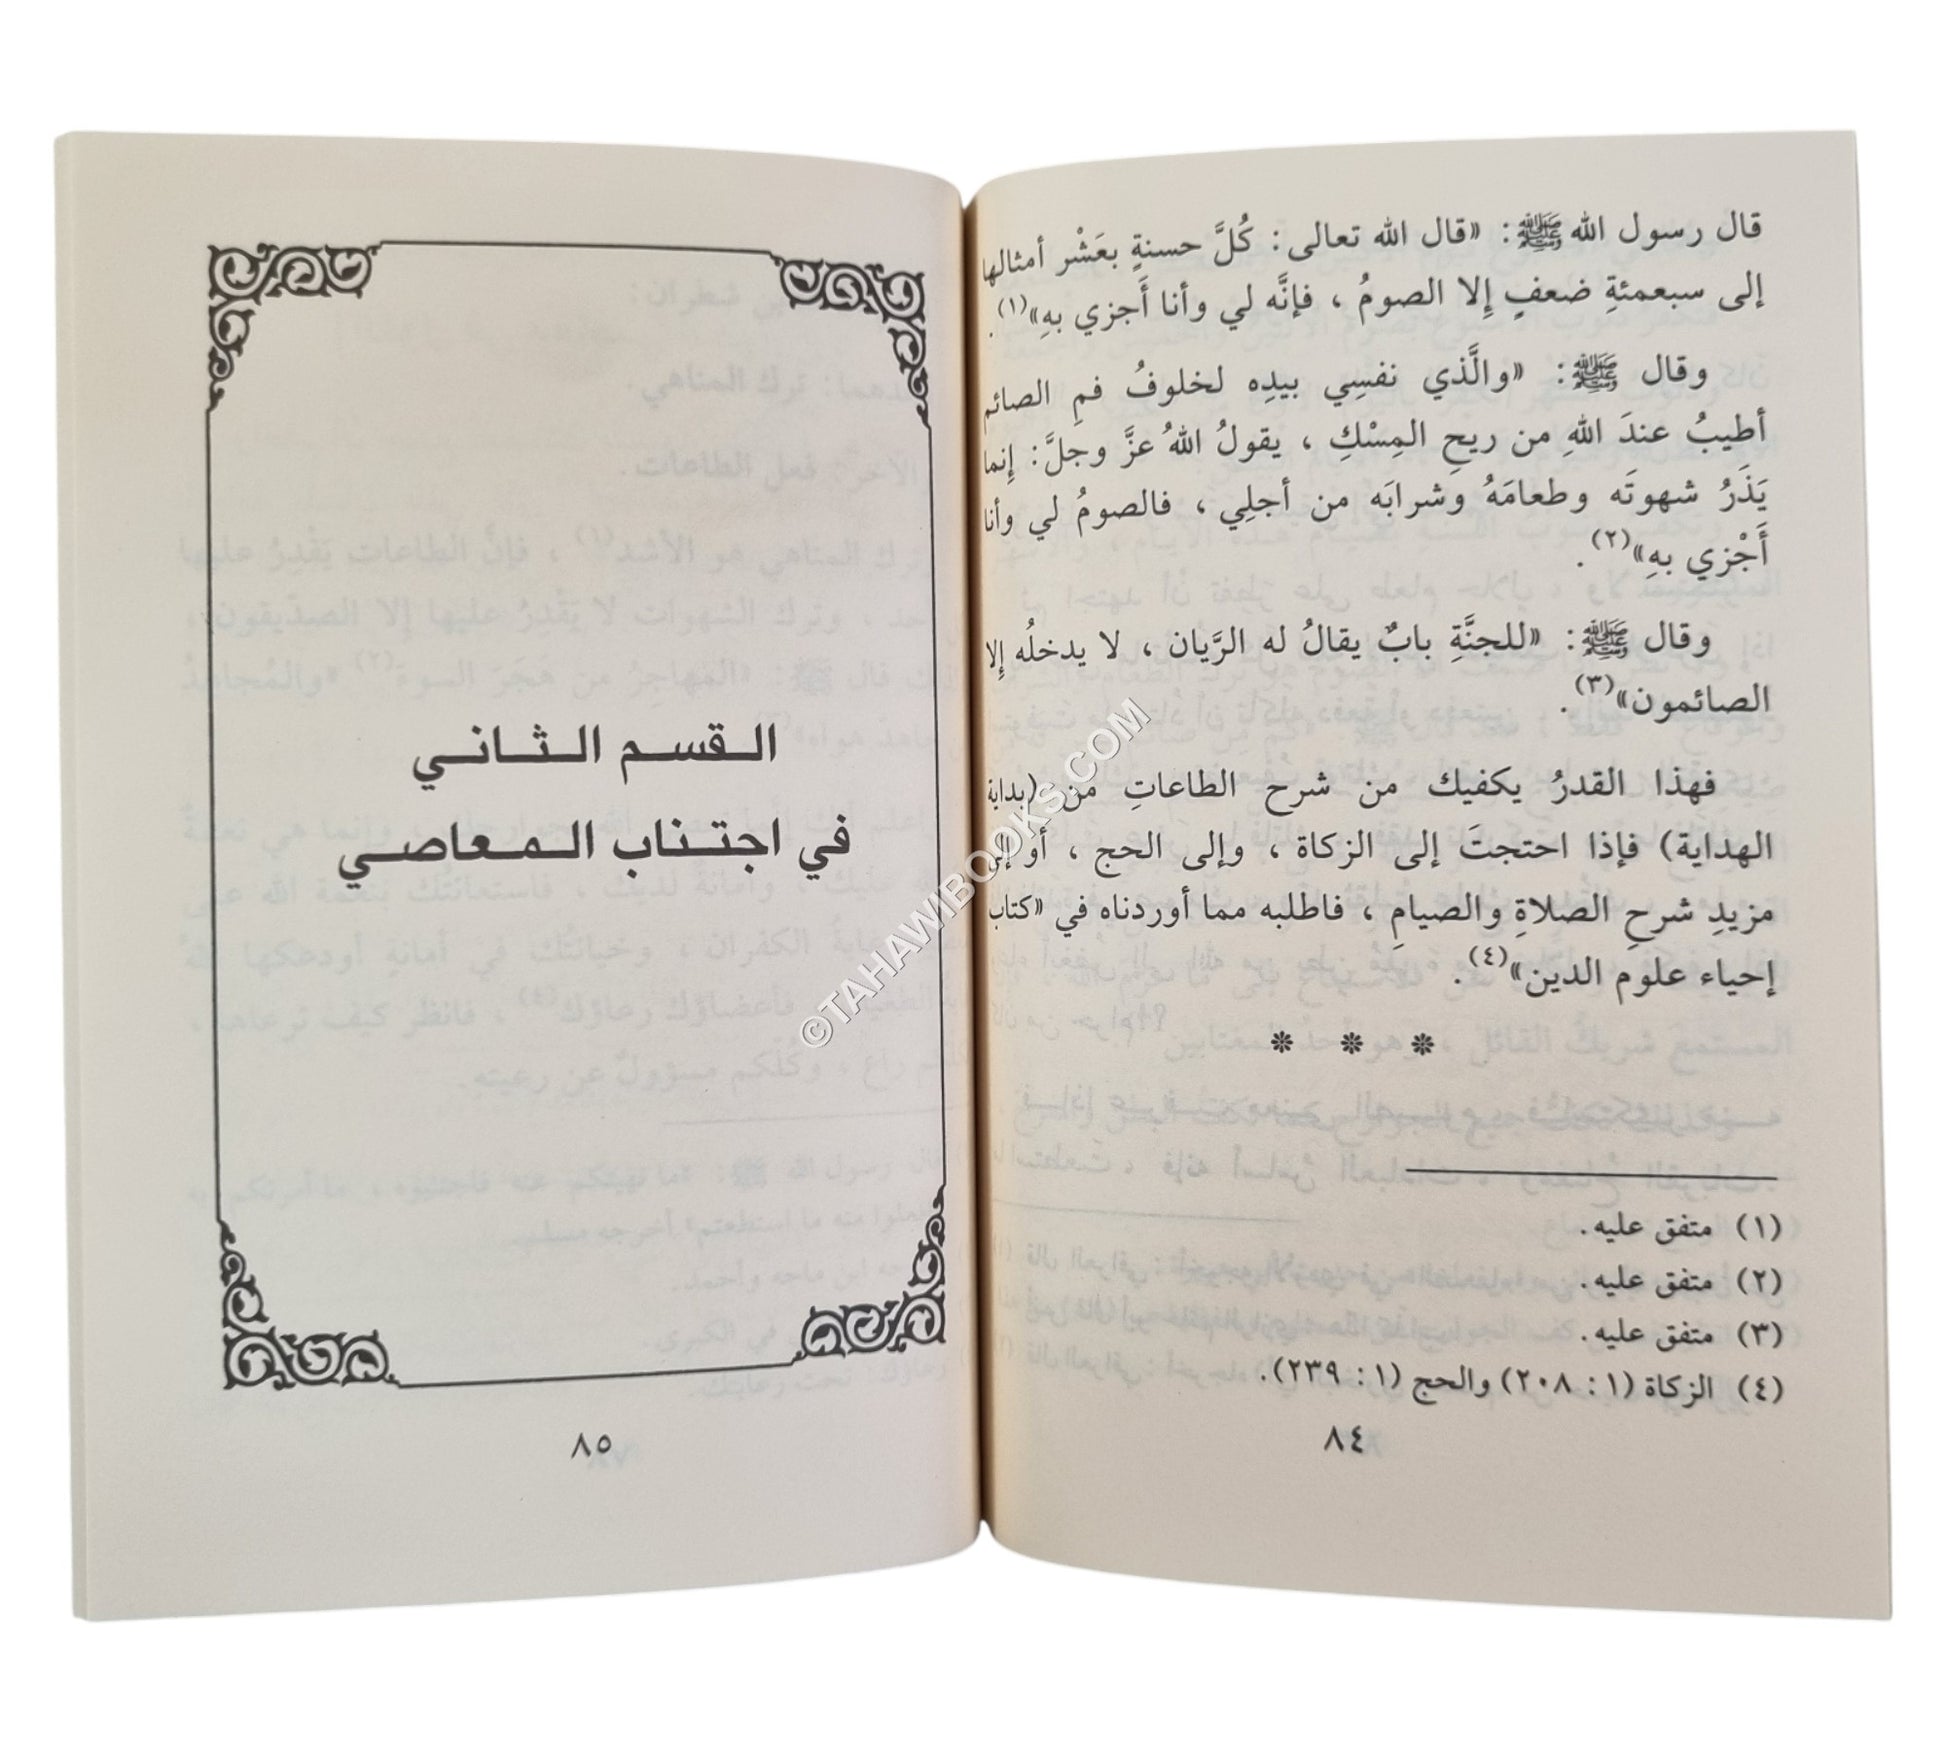 قال رسول الله ﷺ: «قال الله تعالى: كُلَّ حسنةٍ بعَشْر أمثالها
إلى سبعمئةِ ضعفٍ إِلا الصومُ ، فإنَّه لي وأنا أَجزي بهِ»(١).
وقال ﷺ: «والَّذي نفسِي بيدِه لخلوفُ فمِ الصائم
أطيبُ عندَ اللهِ من ريحِ المِسْكِ ، يقولُ اللهُ عزَّ وجلَّ: إِنما
يَذَرُ شهوتَه وطعامَهُ وشرابَه من أجلِي ، فالصومُ لي وأنا
أَجْزي بهِ»(٢).
وقال ﷺ: «للجنَّةِ بابٌ يقالُ له الرَّيان ، لا يدخلُه إِلا
الصائمون»(٣).
فهذا القدرُ يكفيك من شرح الطاعاتِ من (بداية
الهداية) فإذا احتجتَ إلى الزكاة ، وإلى الحج ، أو إلى
مزيدِ شرحِ الصلاةِ والصيامِ ، فاطلبه مما أوردناه في «كتاب
إحياء علوم الدين»(٤).
* * *
(١) متفق عليه.
(٢) متفق عليه.
(٣) متفق عليه.
(٤) الزكاة (١: ٢٠٨) والحج (١: ٢٣٩).
٨٤
القسم الثاني
في اجتناب المعاصي
٨٥
©TAHAWIBOOKS.COM